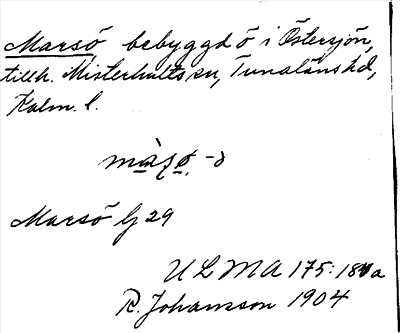 Marsö bebyggd ö i Östersjön,
tillh. Misterhults sn, Tunaläns hd,
Kalm. l.
-ö
Marsö Lj 29
ULMA 175:18 a
R. Johansson 1904